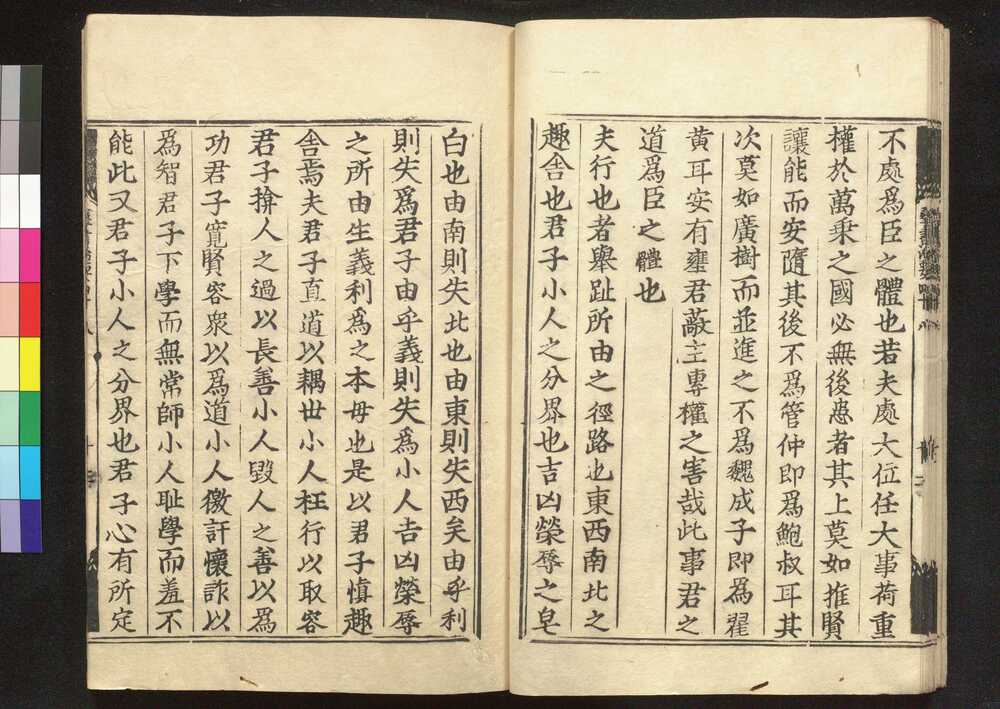 不處爲臣之體也若夫處大位任大事荷重
權於萬乘之國必無後患者其上莫如推賢
讓能而安隨其後不爲管仲即爲鮑叔耳其
次莫如廣樹而並進之不爲魏成子即爲翟
黃耳安有壅君蔽主專權之害哉此事君之
道爲臣之體也
夫行也者舉趾所由之徑路也東西南北之
趣舍也君子小人之分界也吉凶榮辱之皂
白也由南則失北也由東則失西矣由乎利
則失爲君子由乎義則失爲小人吉凶榮辱
之所由生義利爲之本母也是以君子慎趣
舍焉夫君子直道以耦世小人枉行以取容
君子揜人之過以長善小人毀人之善以爲
功君子寬賢容衆以爲道小人徼訐懷詐以
爲智君子下學而無常師小人耻學而羞不
能此又君子小人之分界也君子心有所定